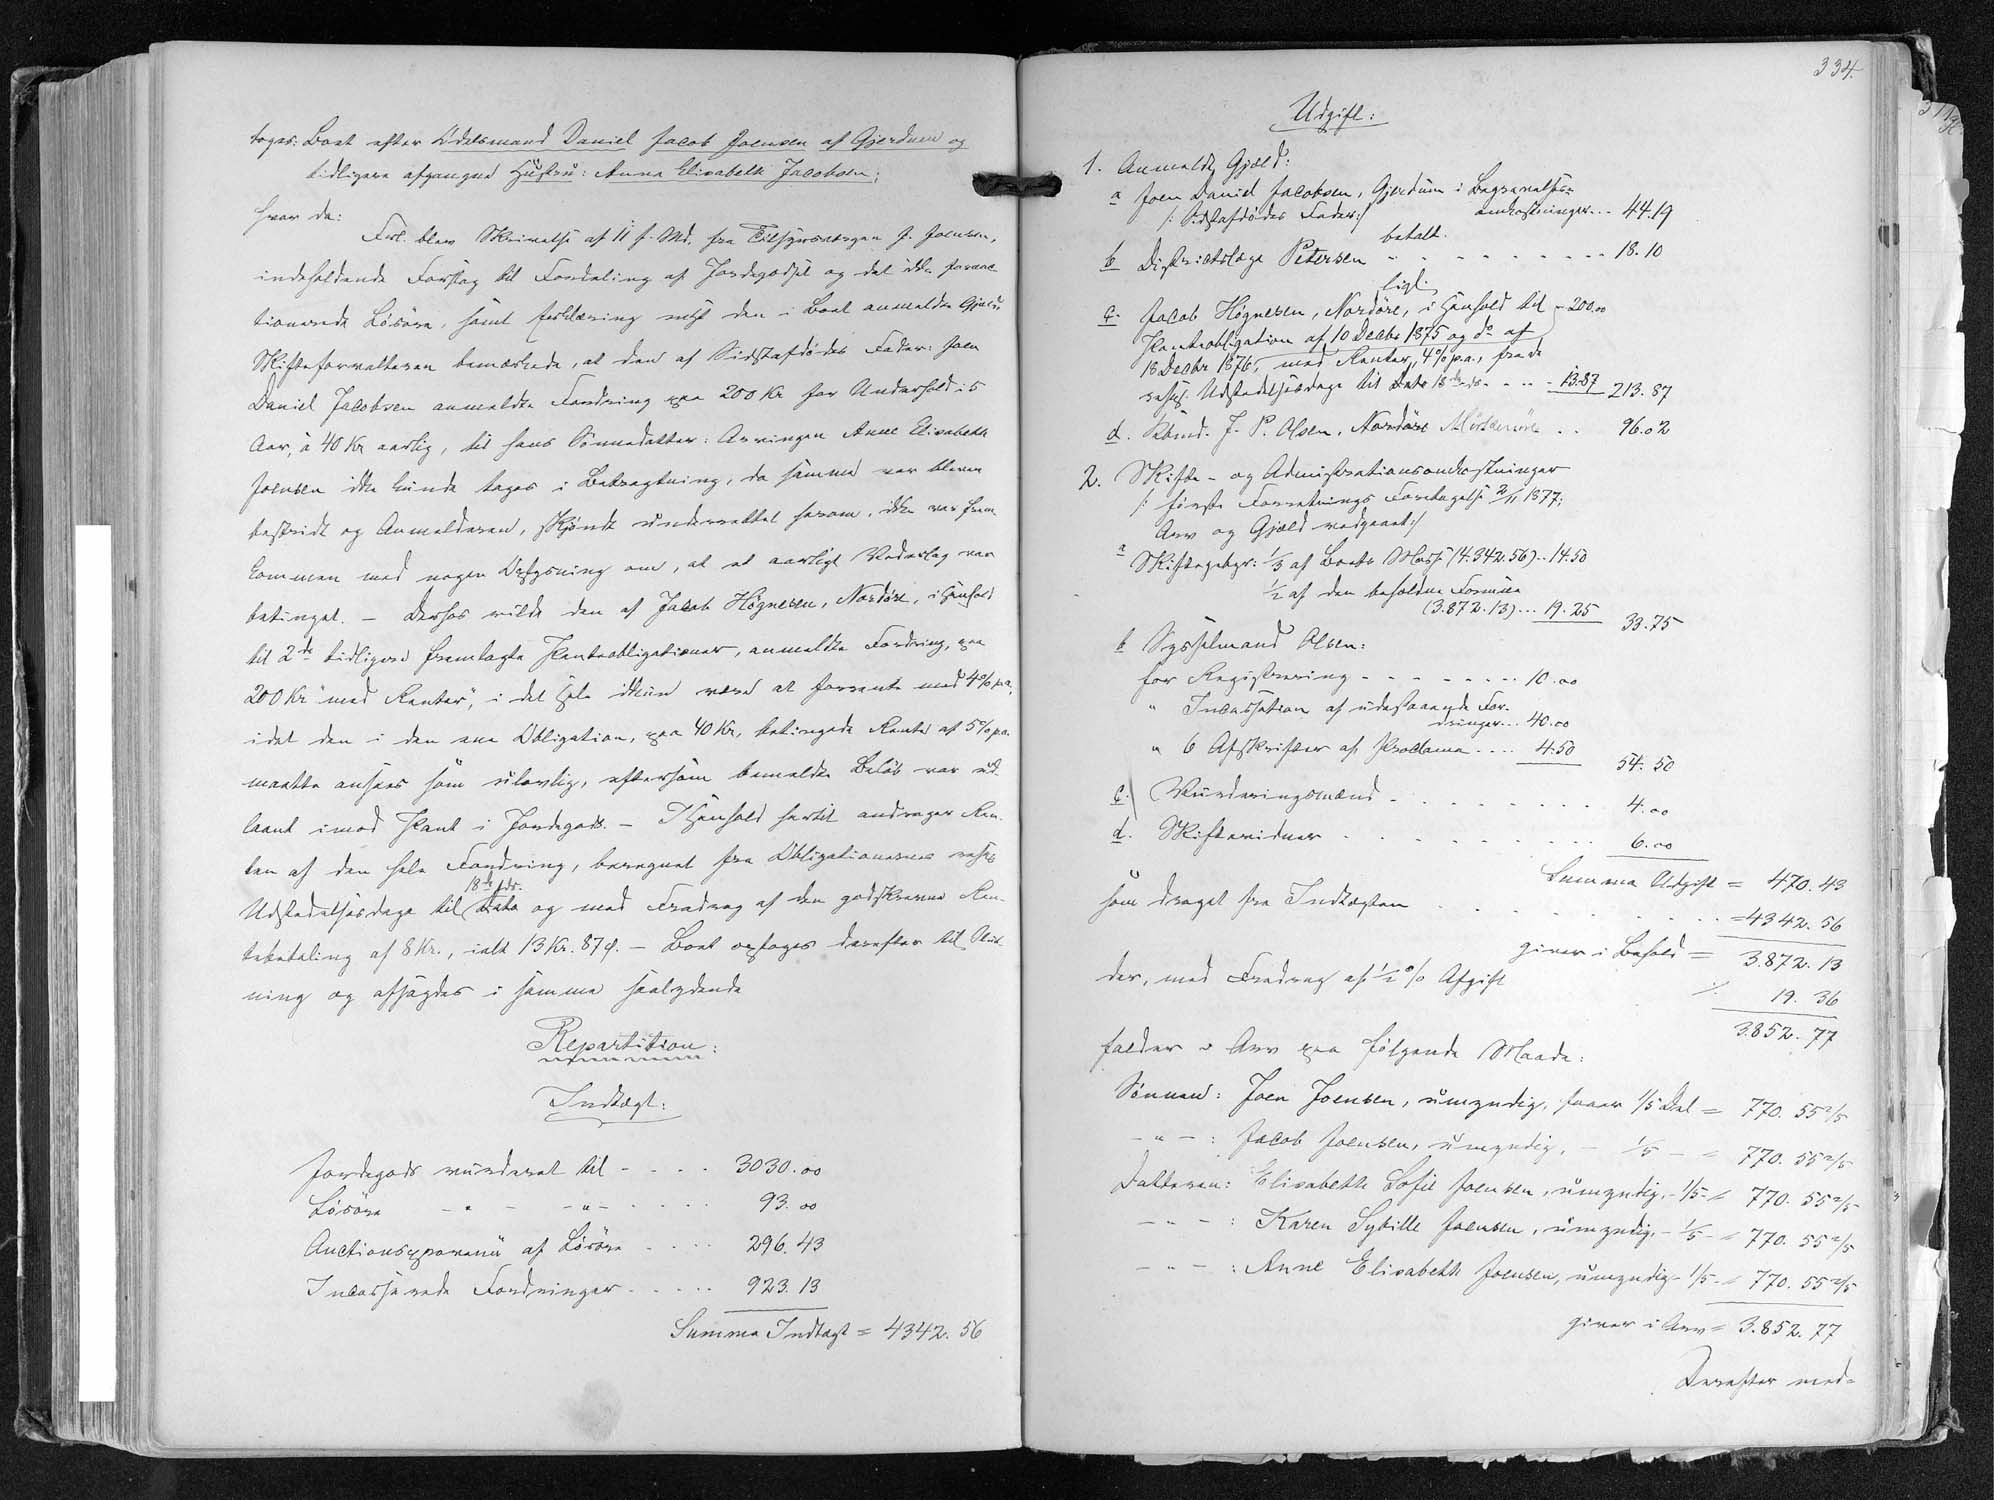 toges: Boet efter Odelsmand Daniel Jacob Joensen af Gjerdum og
tidligere afgangne Hustru: Anna Elisabeth Jacobsen;
hvor da:
Frl. blev Skrivelse af 11 f. Md. fra Tilsynsværgen J. Joensen,
indeholdende Forslag til Fordeling af Jordegodset og det ikke foraucc
tionerede Lösöre, samt Erklæring mht den i Boet anmeldte Gjæld;
Skifteforvalteren bemærkede, at den af Sidstafdödes Fader: Joen
Daniel Jacobsen anmeldte Fordring paa 200 Kr for Underhold i 5
Aar, à 40 Kr aarlig, til hans Sönnedatter: Arvingen Anne Elisabeth
Joensen ikke kunde tages i Betragtning, da samme var bleven
bestridt og Anmelderen, skjöndt underrettet herom, ikke var frem
kommen med nogen Oplysning om, at et aarligt Vederlag var
betinget. – Derhos vilde den af Jacob Högnesen, Nordöre, i Henhold
til 2de tidligere fremlagte Panteobligationer, anmeldte Fordring, paa
200 Kr "med Renter", i det Hele ikkun være at forrente med 4% p.a.,
idet den i den ene Obligation, paa 40 Kr, betingede Rente af 5% p.a.
maatte ansees som ulovlig, eftersom bemeldte Belöb var ud-
laant imod Pant i Jordegods. – I Henhold hertil andrager Ren-
ten af den hele Fordring, beregnet fra Obligationernes resp.
18de ds.
Udstedelsesdage til Dato og med Fradrag af den godskrevne Ren-
tebetaling af 8 Kr., ialt 13 Kr. 87 Ø. – Boet optoges derefter til Slut-
ning og afsagdes i samme saalydende
Repartition:
Indtægt:
Jordegods vurderet til - - - - 3030.00
Lösöre - " - - " - - - - - 93.00
Auctionsprovenü af Lösöre - - - - 296.43
Incasserede Fordringer - - - - - 923.13
Summa Indtægt = 4342.56
334.
Udgift:
1. Anmeldt Gjæld:
a Joen Daniel Jacobsen, Gjerdum i Begravelses-
/: Sidstafdödes Fader:/ omkostninger... 44.19
betalt.
b Districtslæge Petersen - - - - - - - - 18.10
ligl.
c. Jacob Högnesen, Nordöre, i Henhold til - 200.00
Panteobligation af 10 Decbr 1875 og do af
18 Decbr 1876, med Renter, 4% p.a., fra de
resp. Udstedelsesdage til Dato 18de ds. - - - 13.87 213.87
d. Kbmd. J. P. Olsen, Nordöre . . 96.02
2. Skifte- og Administrationsomkostninger
/: förste Forretnings Foretagelse 2/11 1877;
Arv og Gjæld vedgaaet:/
a Skiftegebyr: 1/3 af Boets Masse (4.342.56) .. 14.50
1/2 af den beholdne Formue
(3.872.13) ... 19.25 33.75
b Sysselmand Olsen:
for Registrering - - - - - - - - 10.00
" Incassation af udestaaende For-
dringer... 40.00
" 6 Afskrifter af Proclama .... 4.50 54.50
c. Vurderingsmænd - - - - - - - - 4.00
d. Skiftevidner - - - - - - - - 6.00
Summa Udgift = 470.43
som draget fra Indtægten - - - - - - - - = 4342.56
giver i Behold = 3.872.13
der, med Fradrag af 1/2 % Afgift ./. 19.36
3.852.77
falder i Arv paa fölgende Maade:
Sönnen: Joen Joensen, umyndig, faaer 1/5 Del = 770.55 2/5
- " - : Jacob Joensen, umyndig, - 1/5 - = 770.55 2/5
Datteren: Elisabeth Sofie Joensen, umyndig, - 1/5 - = 770.55 2/5
- " - : Karen Sybille Joensen, umyndig, - 1/5 - = 770.55 2/5
- " - : Anne Elisabeth Joensen, umyndig - 1/5 - = 770.55 2/5
giver i Arv = 3.852.77
Derefter med-